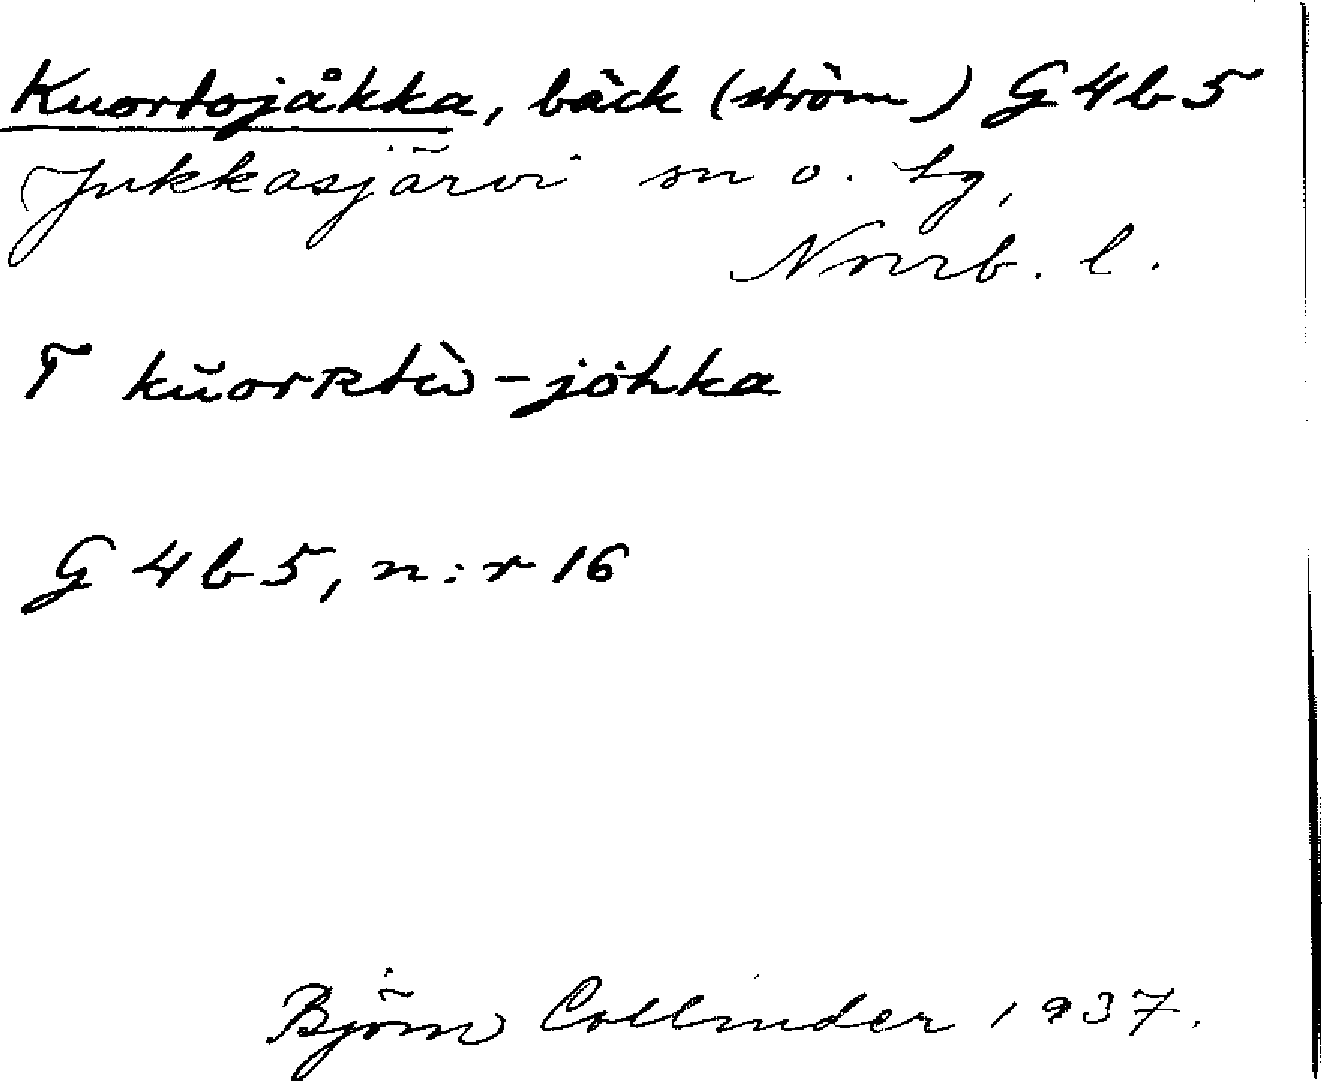 Kuortojåkka, bäck (ström) G4b5
Jukkasjärvi sn o. tg,
Norrb. l.
T kŭorʀtὼ-jòhka
G 4b5, n:r 16
Björn Collinder 1937.